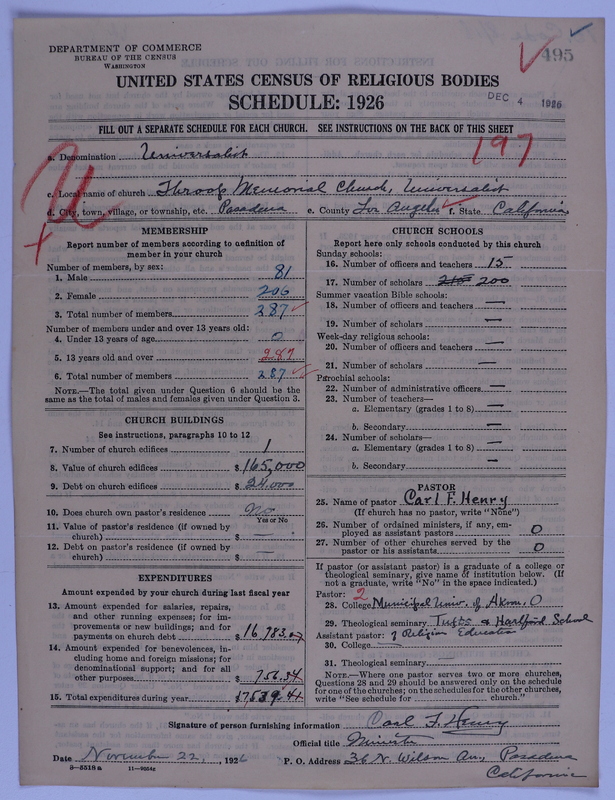 495
DEPARTMENT OF COMMERCE
BUREAU OF THE CENSUS
WASHINGTON
UNITED STATES CENSUS OF RELIGIOUS BODIES
SCHEDULE: 1926
DEC 4 1926
FILL OUT A SEPARATE SCHEDULE FOR EACH CHURCH. SEE INSTRUCTIONS ON THE BACK OF THIS SHEET
197
a. Denomination Universalist
c. Local name of church Throop Memorial Church, Universalist
d. City, town, village, or township, etc. Pasadena e. County Los Angeles f. State California
MEMBERSHIP
Report number of members according to definition of
member in your church
Number of members, by sex:
1. Male 81
2. Female 206
3. Total number of members 287
Number of members under and over 13 years old:
4. Under 13 years of age 0
5. 13 years old and over 287
6. Total number of members 287
NOTE.—The total given under Question 6 should be
the same as the total of males and females given under Question 3.
CHURCH BUILDINGS
See instructions, paragraphs 10 to 12
7. Number of church edifices 1
8. Value of church edifices $165,000
9. Debt on church edifices $24,000
10. Does church own pastor's residence No
Yes or No
11. Value of pastor's residence (if owned by
church) $ —
12. Debt on pastor's residence (if owned by
church) $ —
EXPENDITURES
Amount expended by your church during last fiscal year
13. Amount expended for salaries, repairs,
and other running expenses; for im-
provements or new buildings; and for
payments on church debt $16,783.
14. Amount expended for benevolences, in-
cluding home and foreign missions; for
denominational support; and for all
other purposes $756.34
15. Total expenditures during year
CHURCH SCHOOLS
Report here only schools conducted by this church
Sunday schools:
16. Number of officers and teachers 15
17. Number of scholars 200
Summer vacation Bible schools:
18. Number of officers and teachers —
19. Number of scholars —
Week-day religious schools:
20. Number of officers and teachers —
21. Number of scholars —
Parochial schools:
22. Number of administrative officers —
23. Number of teachers—
a. Elementary (grades 1 to 8) —
b. Secondary —
24. Number of scholars—
a. Elementary (grades 1 to 8) —
b. Secondary —
PASTOR
25. Name of pastor Carl F. Henry
(If church has no pastor, write "None")
26. Number of ordained ministers, if any, em-
ployed as assistant pastors 0
27. Number of other churches served by the
pastor or his assistants 0
If pastor (or assistant pastor) is a graduate of a college or
theological seminary, give name of institution below. (If
not a graduate, write "No" in the space indicated.)
Pastor: 2
28. College Municipal Univ. of Akron, O
29. Theological seminary Tufts & Hartford School
Assistant pastor: of Religious Education
30. College
31. Theological seminary —
NOTE.—Where one pastor serves two or more churches,
Questions 28 and 29 should be answered only on the schedule
for one of the churches; on the schedules for the other churches,
write "See schedule for church."
Signature of person furnishing information Carl F. Henry
Official title Minister
Date November 22, 1926 P. O. Address 36 N. Wilson Av., Pasadena
California
8—5518a 11—9904